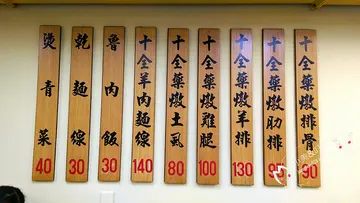 十全藥燉排骨
90
十全藥燉肋排
90
十全藥燉羊排
130
十全藥燉雞腿
100
十全藥燉土虱
80
十全羊肉麵線
140
魯肉飯
30
乾麵線
30
燙青菜
40